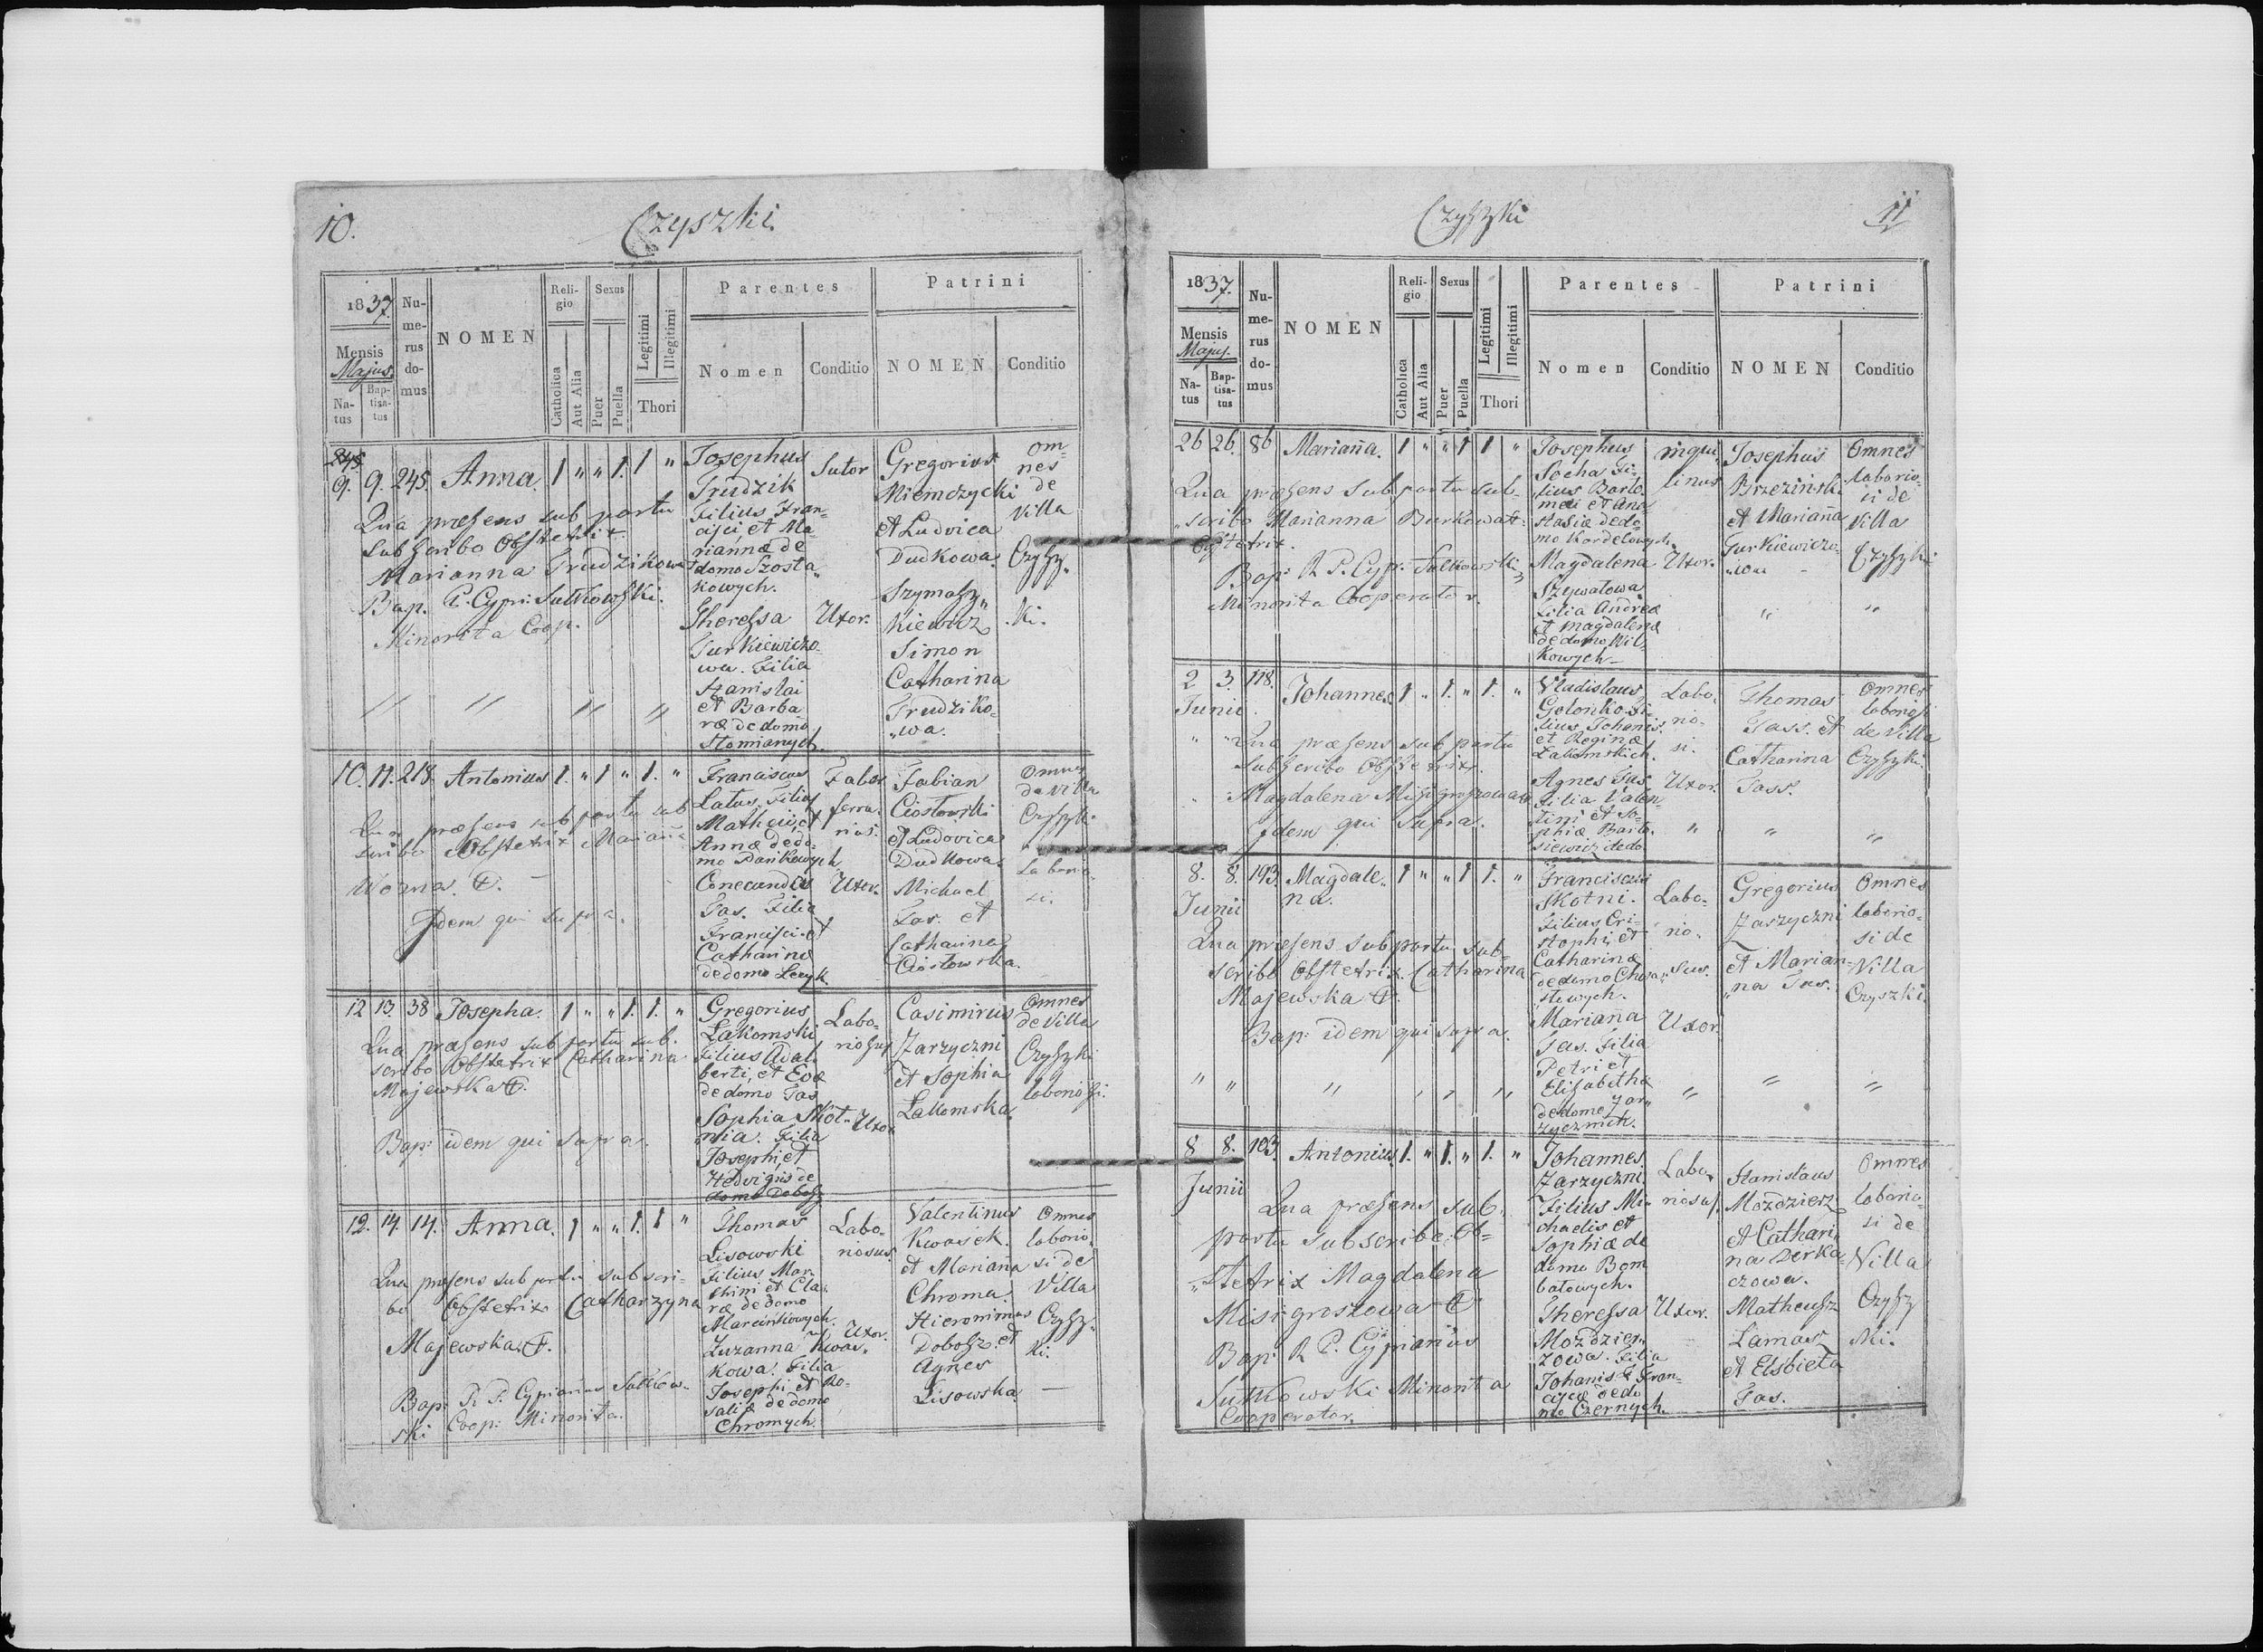 10.
Czyszki.
1837.
Mensis
Majus.
Na-
tus
Bap-
tisa-
tus
Nu-
me-
rus
do-
mus
NOMEN
Reli-
gio
Catholica
Aut Alia
Sexus
Puer
Puella
Legitimi
Illegitimi
Thori
Parentes
Nomen
Conditio
Patrini
NOMEN
Conditio
9. 9. 245. Anna. 1 " " 1. 1 "
Qua præsens sub partu
Subscribo Obstetrix
Marianna Trudzikowa
Bap. P. Cypri: Sutkowski.
Minorita Coop.
Josephus
Trudzik
Filius Fran-
cisci, et Ma-
riannæ de
domo Szosta„
kowych.
Sutor
Theressa
Turkiewiczo-
wa. Filia
Stanislai
et Barba
ræ de domo
Stomianych
Uxor.
Gregorius
Niemczycki
et Ludvica
Dudkowa.
Szymasz„
kiewicz
Simon
Catharina
Trudziko-
„wa.
om-
nes
de
Villa
Czysz„
ki.
10. 11. 218. Antonius 1. " 1 " 1. "
Qua præsens sub partu sub
scribo Obstetrix Marianna
Worna. †.
Idem qui supra.
Franciscus
Latus, Filius
Mathei, et
Annæ de do-
mo Pankowych
Faber
ferra-
rius.
Conecundis
Tas. Filia
Francisci et
Catharinæ
de domo Lecyk.
Uxor.
Fabian
Ciostowski
et Ludovica
Dudkowa.
Michael
Tas. et
Catharina
Ciostowska.
Omnes
de Villa
Czyszki
Laborio-
si.
12 13. 38 Josepha. 1 " " 1. 1. "
Qua præsens sub partu sub.
scribo Obstetrix Catharina
Majewska †.
Bap: idem qui supra.
Gregorius
Lakomski
Filius Adal-
berti, et Evæ
de domo Tas
Labo-
riosus
Sophia Skot-
nia. Filia
Josephi, et
Hedvigis de
domo Dobosz
Uxor
Casimirus
Zarzyczni
et Sophia
Lakomska.
Omnes
de Villa
Czyszki
laboriosi.
12. 14. 14. Anna. 1 " " 1. 1 "
Qua præsens sub partu subscri-
bo Obstetrix Catharzyna
Majewska †.
Bap: R. P. Cyprianus Sutkow-
ski Coop: Minorita.
Thomas
Lisowski
Filius Mar-
thini et Cla-
ræ de domo
Marcinkowych.
Labo-
riosus
Zuzanna Kwas„
kowa. Filia
Josephi et Ro-
saliæ de domo
Chromych.
Uxor.
Valentinus
Kwasek.
et Marianna
Chroma.
Hieronimus
Dobosz. et
Agnes
Lisowska.
Omnes
laborio-
si de
Villa
Czysz-
ki.
Czyszki
11
1837.
Mensis
Majus.
Na-
tus
Bap-
tisa-
tus
Nu-
me-
rus
do-
mus
NOMEN
Reli-
gio
Catholica
Aut Alia
Sexus
Puer
Puella
Legitimi
Illegitimi
Thori
Parentes
Nomen
Conditio
Patrini
NOMEN
Conditio
26 26. 86 Marianna. 1 " " 1 1 "
Qua præsens sub partu sub-
„scribo Marianna Burkowa
Obstetrix.
Bap: R. P. Cypr: Sutkowski
Minorita Cooperator.
Josephus
Socha Fi-
lius Bartlo-
mei et Ana-
stasiæ de do-
mo Kordelowych
inqui-
linus
Magdalena
Szywalowa
Filia Andreæ
et Magdalenæ
de domo Wil-
kowych
Uxor.
Josephus
Brzezinski
et Marianna
Turkiewiczo-
„wa
Omnes
laborio-
si de
Villa
Czyszki
2 3. 118. Johannes 1 " 1. " 1. "
Junii
Qua præsens sub partu
subscribo Obstetrix
Magdalena Misigroszowa
Idem qui supra.
Vladislaus
Golonko Fi-
lius Johanis.
et Reginæ
Lakomskich.
Labo-
rio-
si.
Agnes Tas
Filia Valen-
tini et So-
phiæ Barto-
siewicz de do-
Uxor.
Thomas
Tass. et
Catharina
Tass.
Omnes
laboriosi
de Villa
Czyszki.
8. 8. 193. Magdale„ 1 " " 1 1. "
Junii na.
Qua præsens sub partu sub-
scribo Obstetrix Catharina
Majewska †.
Bap: idem qui supra.
Franciscus
Skotni.
Filius Cri-
stophi, et
Catharinæ
de domo Chwa„
stowych.
Labo-
rio-
sus.
Mariana
Tas. Filia
Petri et
Elisabethæ
de domo Zar„
zycznich.
Uxor.
Gregorius
Zarzyczni
et Marian-
„na Tas.
Omnes
laborio-
si de
Villa
Czyszki.
8 8. 103. Antonius. 1. " 1. " 1. "
Junii
Qua præsens sub.
partu subscribo Ob-
„stetrix Magdalena
Misigroszowa †
Bap: R. P. Cyprianus
Sutkowski Minorita
Cooperator.
Johannes
Zarzyczni
Filius Mi-
chaelis et
Sophiæ de
domo Bom
batowych.
Labo-
riosus.
Theressa
Mozdzier„
zowa. Filia
Johanis et Fran-
ciscæ de do
mo Czernych.
Uxor.
Stanislaus
Mozdzierz
et Cathari„
na Derka-
czowa.
Matheusz
Lamasz
et Elsbieta
Tas.
Omnes
laborio-
si de
Villa
Czysz
ki.